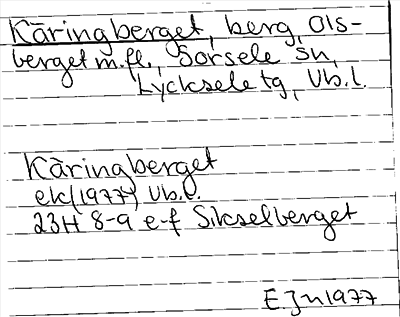 Käringberget, berg, Ols-
berget m.fl., Sorsele sn,
Lycksele tg, Vb.l.
Käringberget
ek (1977) Vb.l.
23H 8-9 e-f Sikselberget
EJn 1977